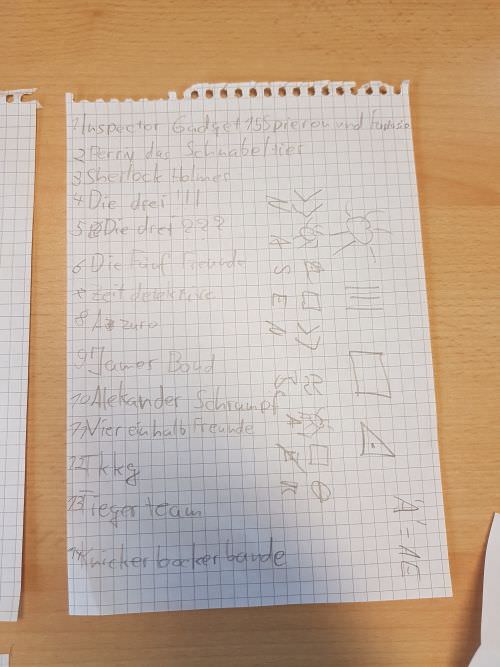 1 Inspector Gadget 15 Spieron und Fantasie
2 Perry das Schnabeltier
3 Sherlock Holmes
4 Die drei !!!
5 Die drei ???
6 Die Fünf Freunde
7 Zeitdetektive
8 Azzuro
9 James Bond
10 Alekander Schrumpf
11 Viereinhalb Freunde
12 Tkkg
13 Tiegerteam
14 Knickerbockerbande
N A S E N
'A' - AE